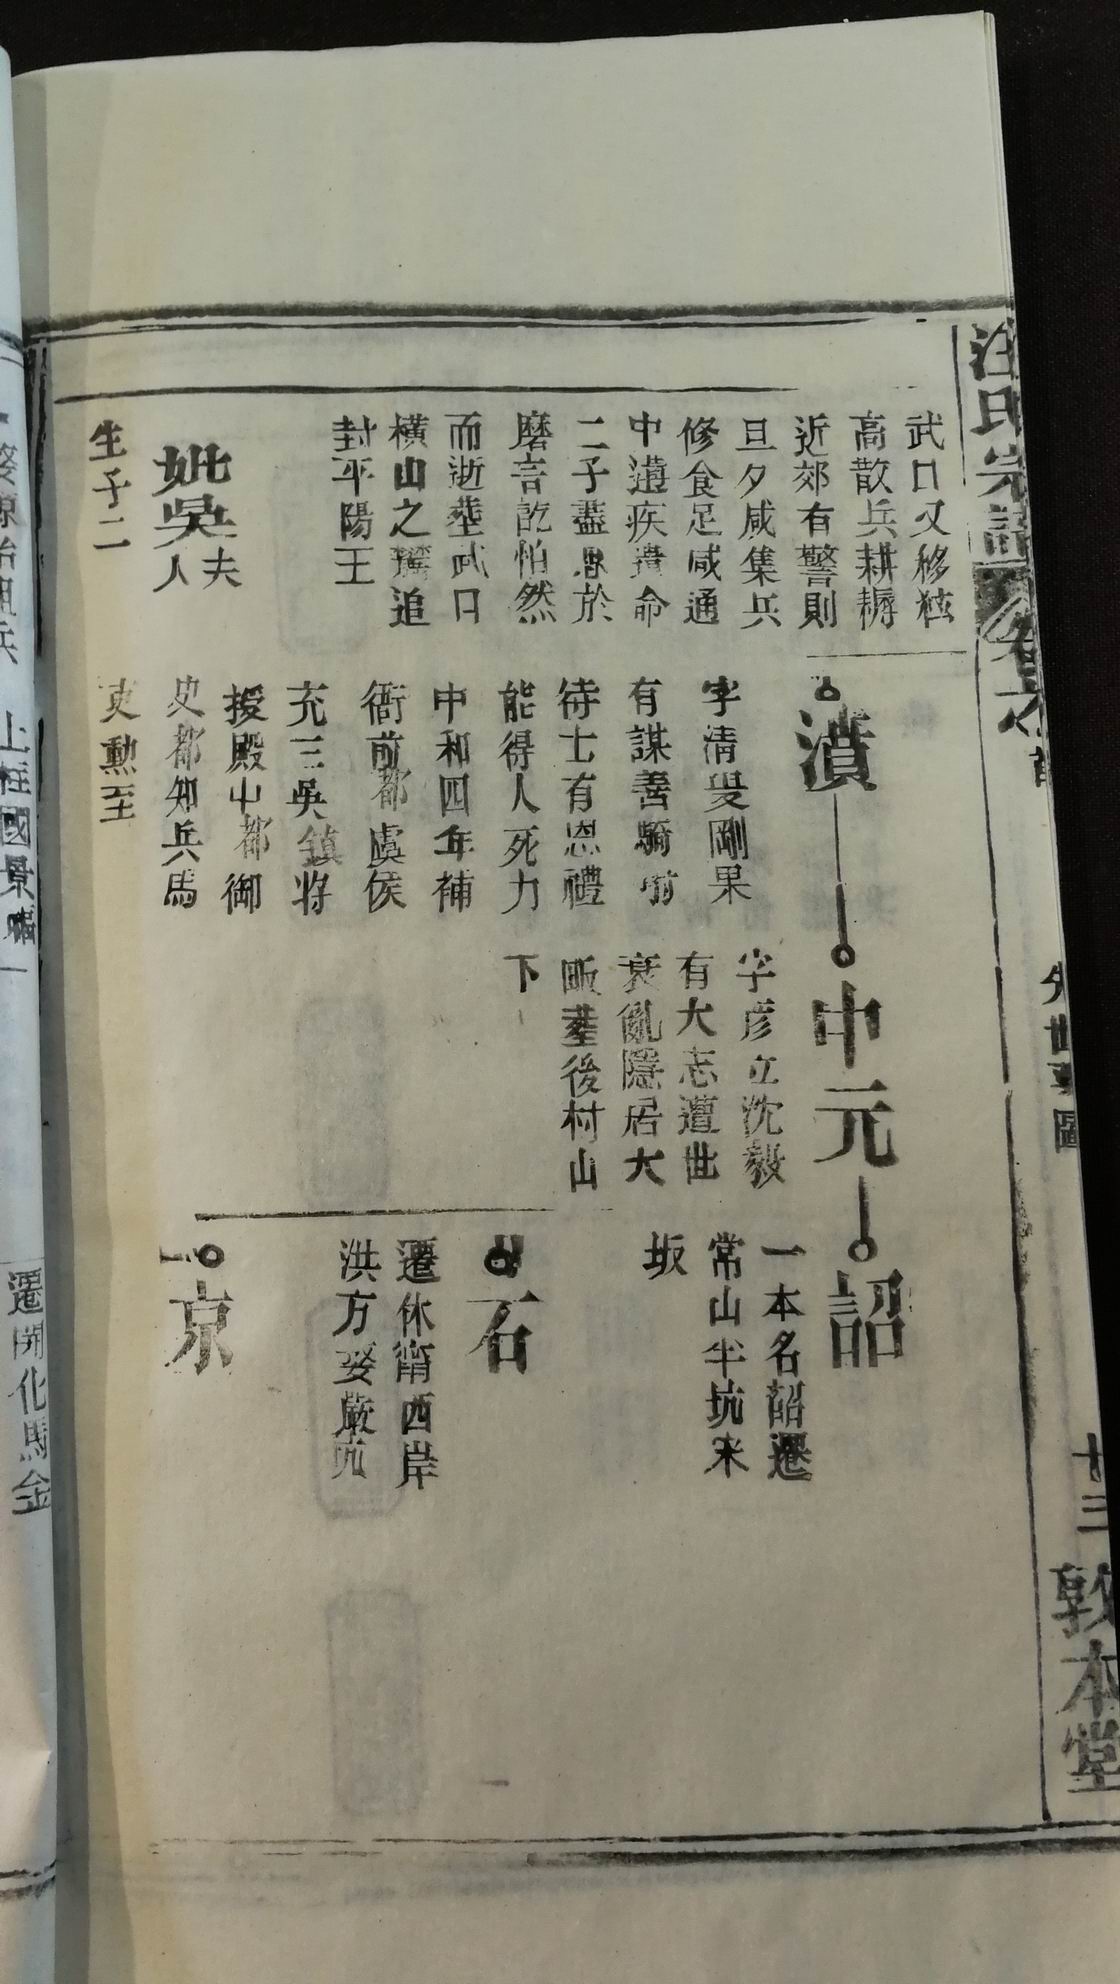 汪氏宗譜
卷六
先世事圖
廿三
敦本堂
武口又移
高散兵耕耨
近郊有警則
旦夕咸集兵
修食足咸通
中遘疾遺命
二子盡忠於
言訖怕然
而逝塟武口
橫山之 追
封平陽王
妣吳夫人
生子二
濆
字清 剛果
有謀善騎射
待士有恩禮
能得人死力
中和四年補
衙前都虞侯
充三吳鎮將
授殿中都御
史都知兵馬
使勳至
中元
字彥立沈毅
有大志遭世
衰亂隱居大
畈塟後村山
下
詔
一本名韶遷
常山半坑宋
坂
石
遷休甯西岸
洪方婺嚴坑
京
上柱國景福
遷開化馬金